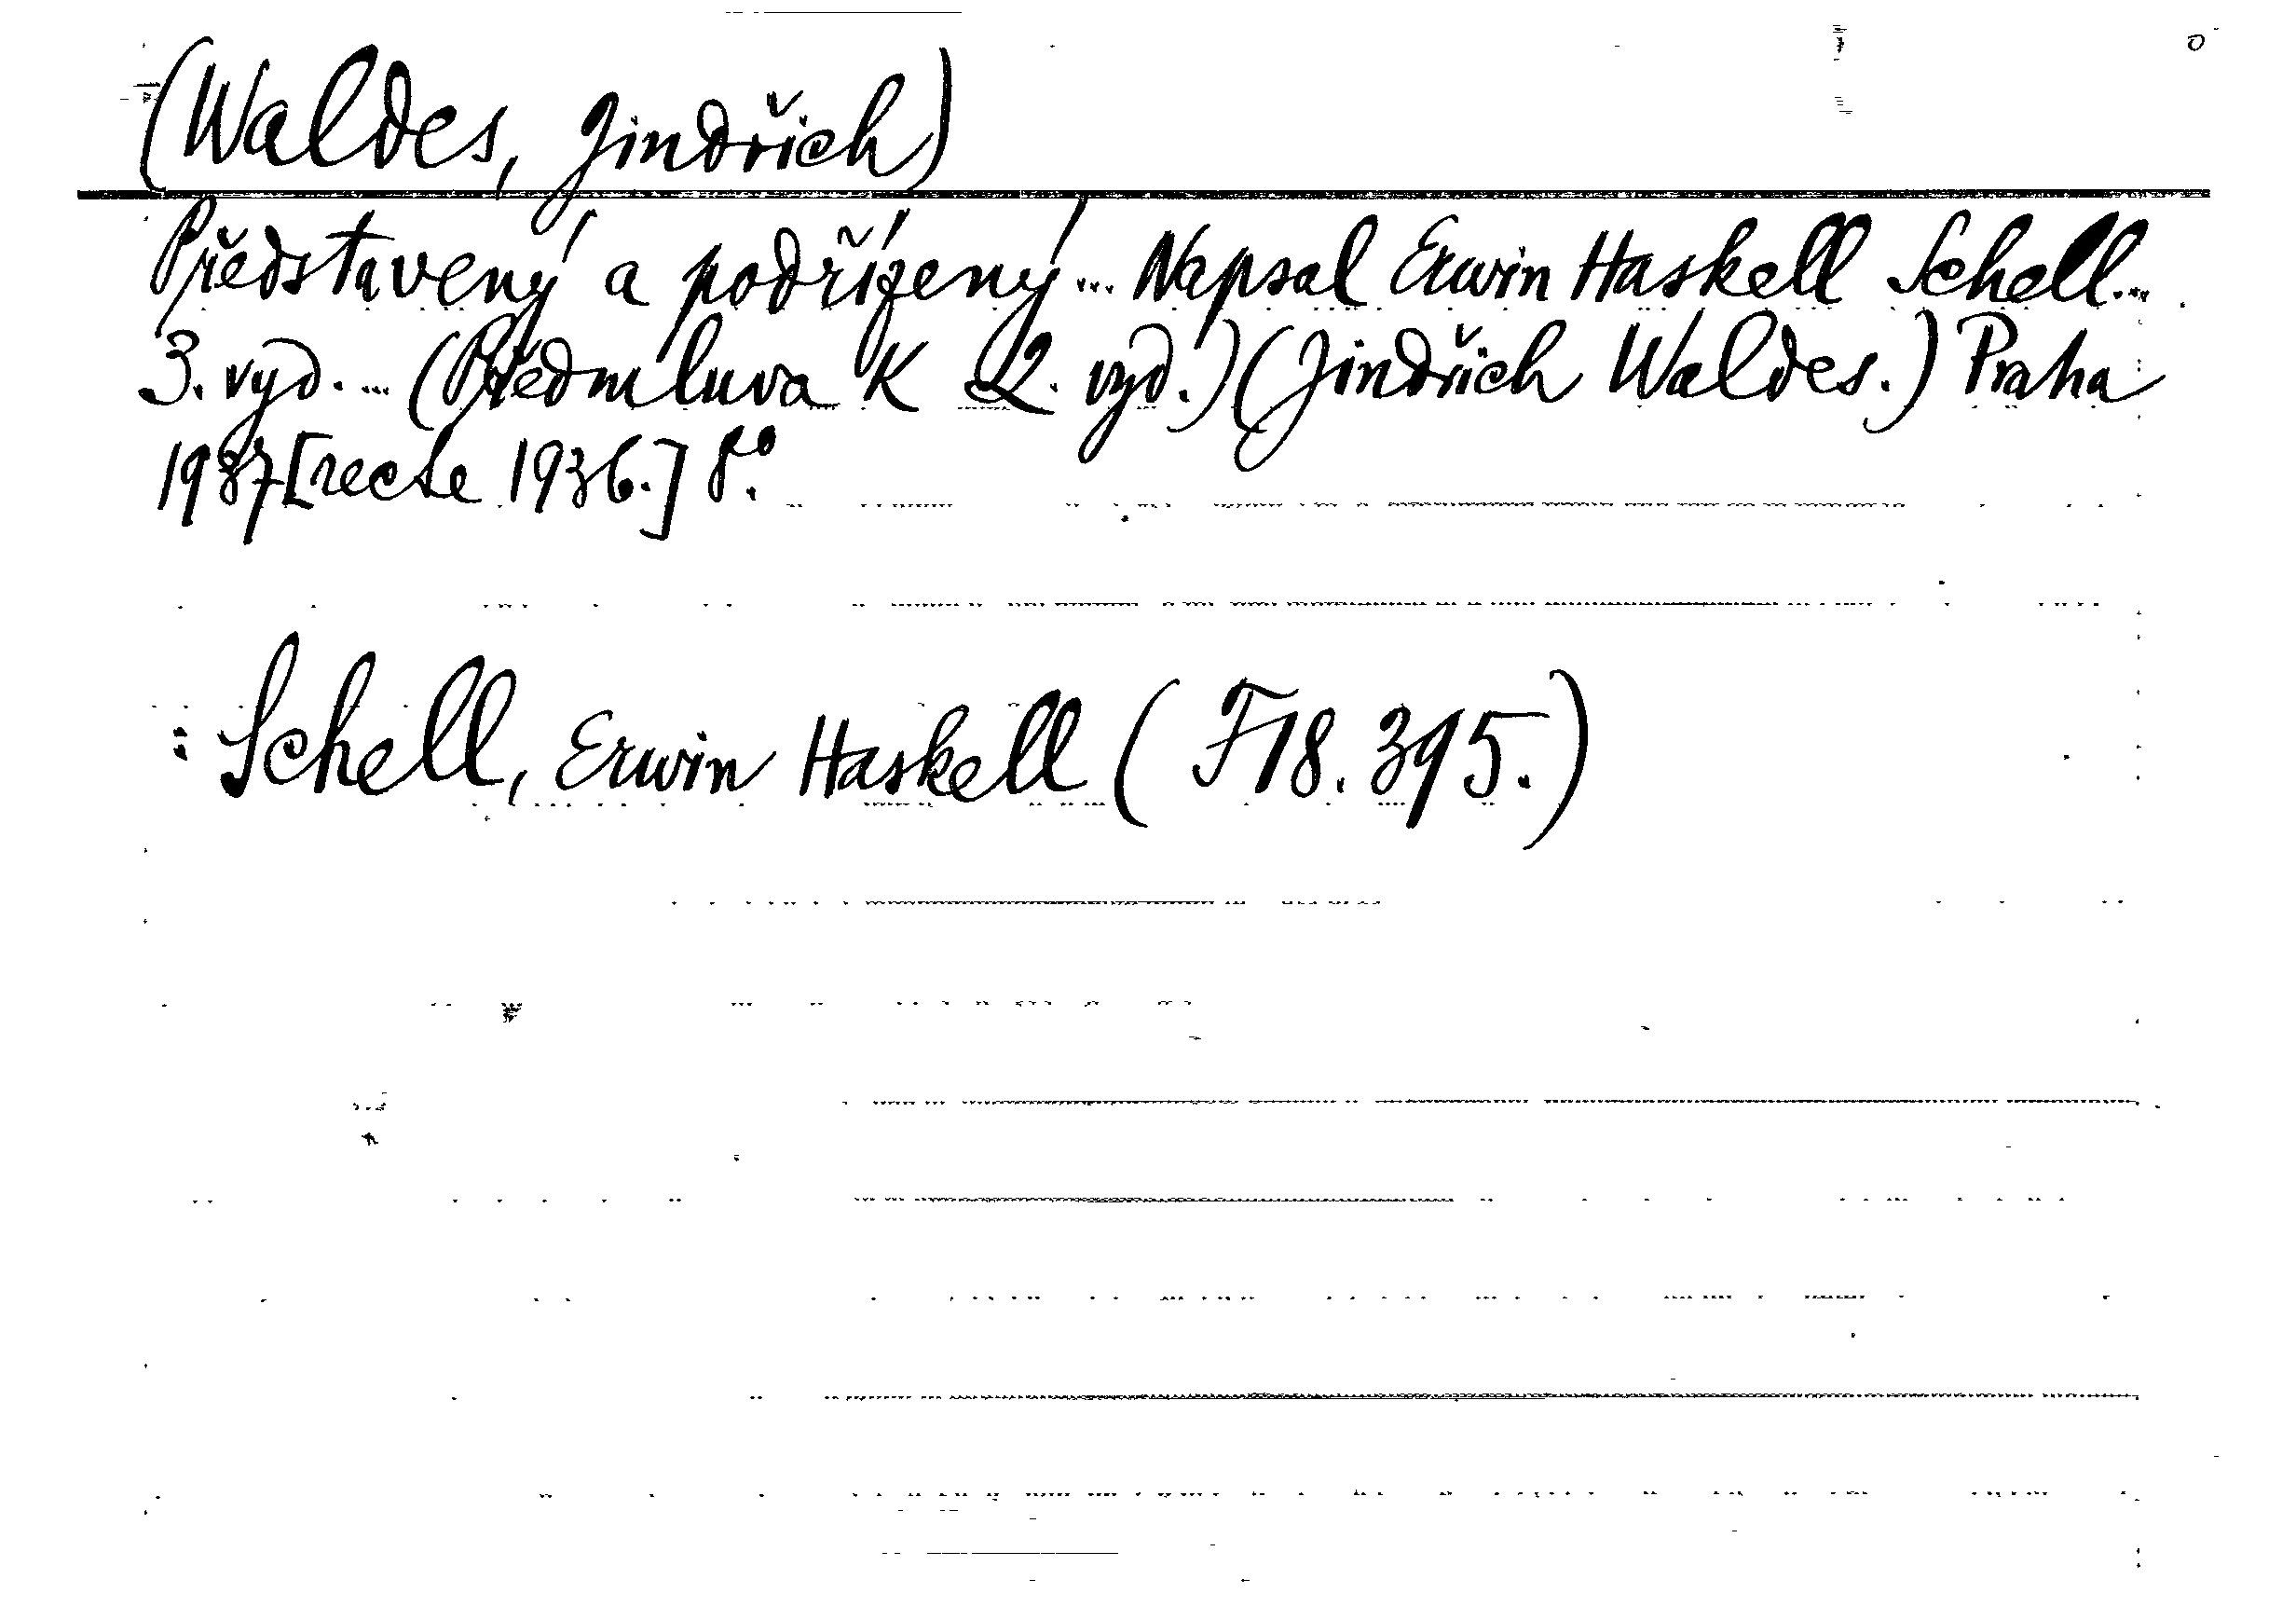 (Waldes, Jindřich)
Představený a podřízený... Napsal Erwin Haskell Schell...
3. vyd. ... (Předmluva K 2. vyd.) (Jindřich Waldes.) Praha
1937 [recte 1936.] 8°.
: Schell, Erwin Haskell (F18.395.)